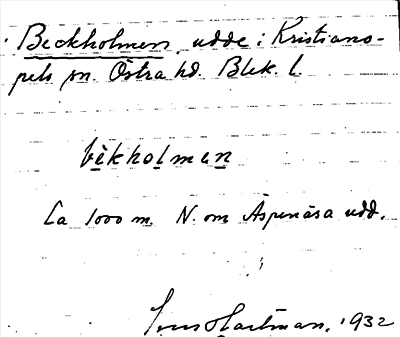 Beckholmen, udde i Kristiano-
pels sn. Östra hd. Blek. l.
bèkholmen
Ca 1000 m. N. om Äspenäsa udd.
Hartman, 1932